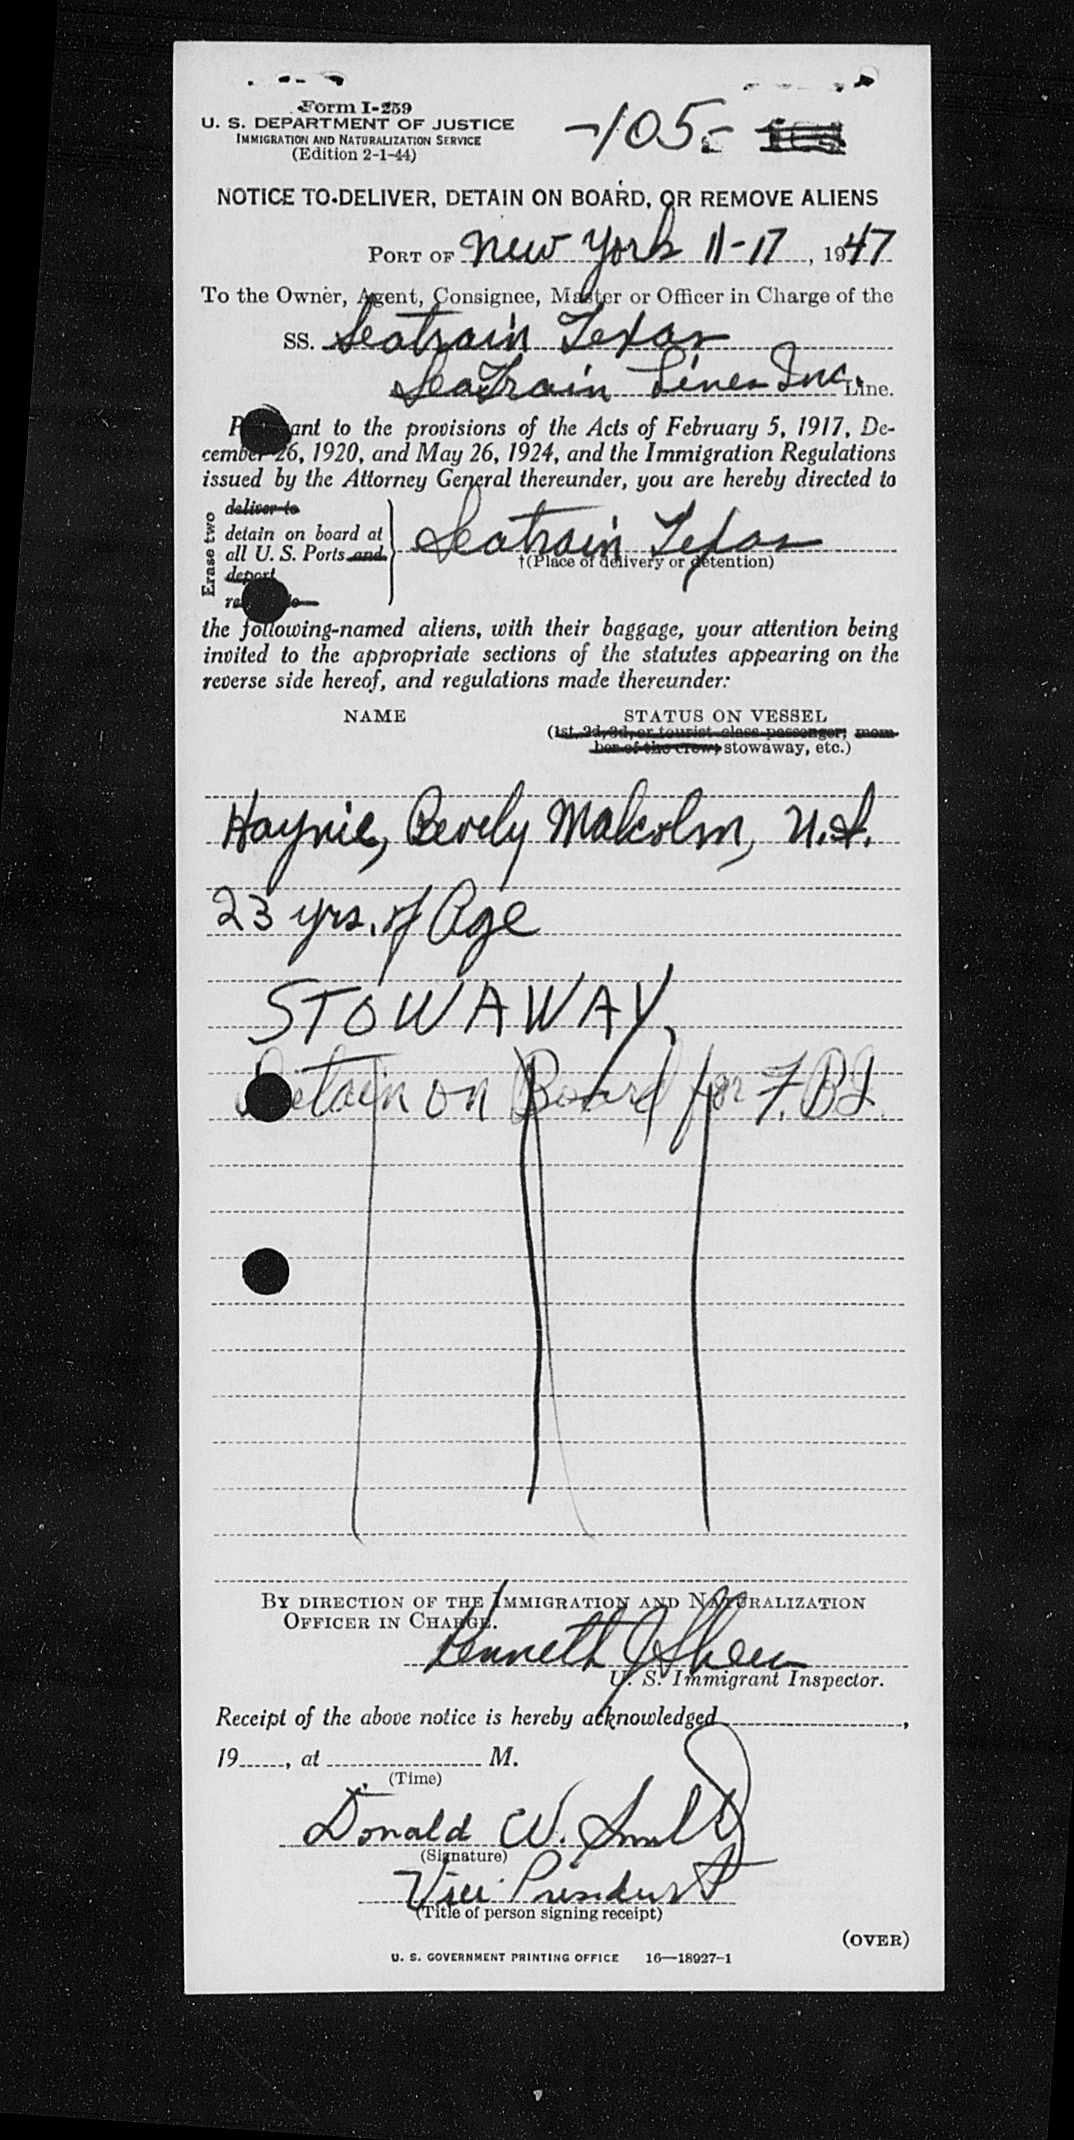 Form I-259
U. S. DEPARTMENT OF JUSTICE
IMMIGRATION AND NATURALIZATION SERVICE
(Edition 2-1-44)
-105-
NOTICE TO DELIVER, DETAIN ON BOARD, OR REMOVE ALIENS
PORT OF New York 11-17, 1947
To the Owner, Agent, Consignee, Master or Officer in Charge of the
SS. Seatrain Texas
SeaTrain Lines Inc. Line.
ant to the provisions of the Acts of February 5, 1917, De-
cember 26, 1920, and May 26, 1924, and the Immigration Regulations
issued by the Attorney General thereunder, you are hereby directed to
Erase two
deliver to
detain on board at
all U. S. Ports and
deport
Seatrain Texas
†(Place of delivery or detention)
the following-named aliens, with their baggage, your attention being
invited to the appropriate sections of the statutes appearing on the
reverse side hereof, and regulations made thereunder:
NAME STATUS ON VESSEL
(1st, 2d, 3d, or tourist class passenger; mem-
ber of the crew; stowaway, etc.)
Haynie, Beverly Malcolm, U.S.
23 yrs. of Age
STOWAWAY,
Detain on Board for F.B.I.
BY DIRECTION OF THE IMMIGRATION AND NATURALIZATION
OFFICER IN CHARGE.
Kenneth J Shea
U. S. Immigrant Inspector.
Receipt of the above notice is hereby acknowledged ,
19 , at M.
(Time)
Donald W. Smith
(Signature)
Vice President
(Title of person signing receipt)
(OVER)
U. S. GOVERNMENT PRINTING OFFICE 16—18927-1